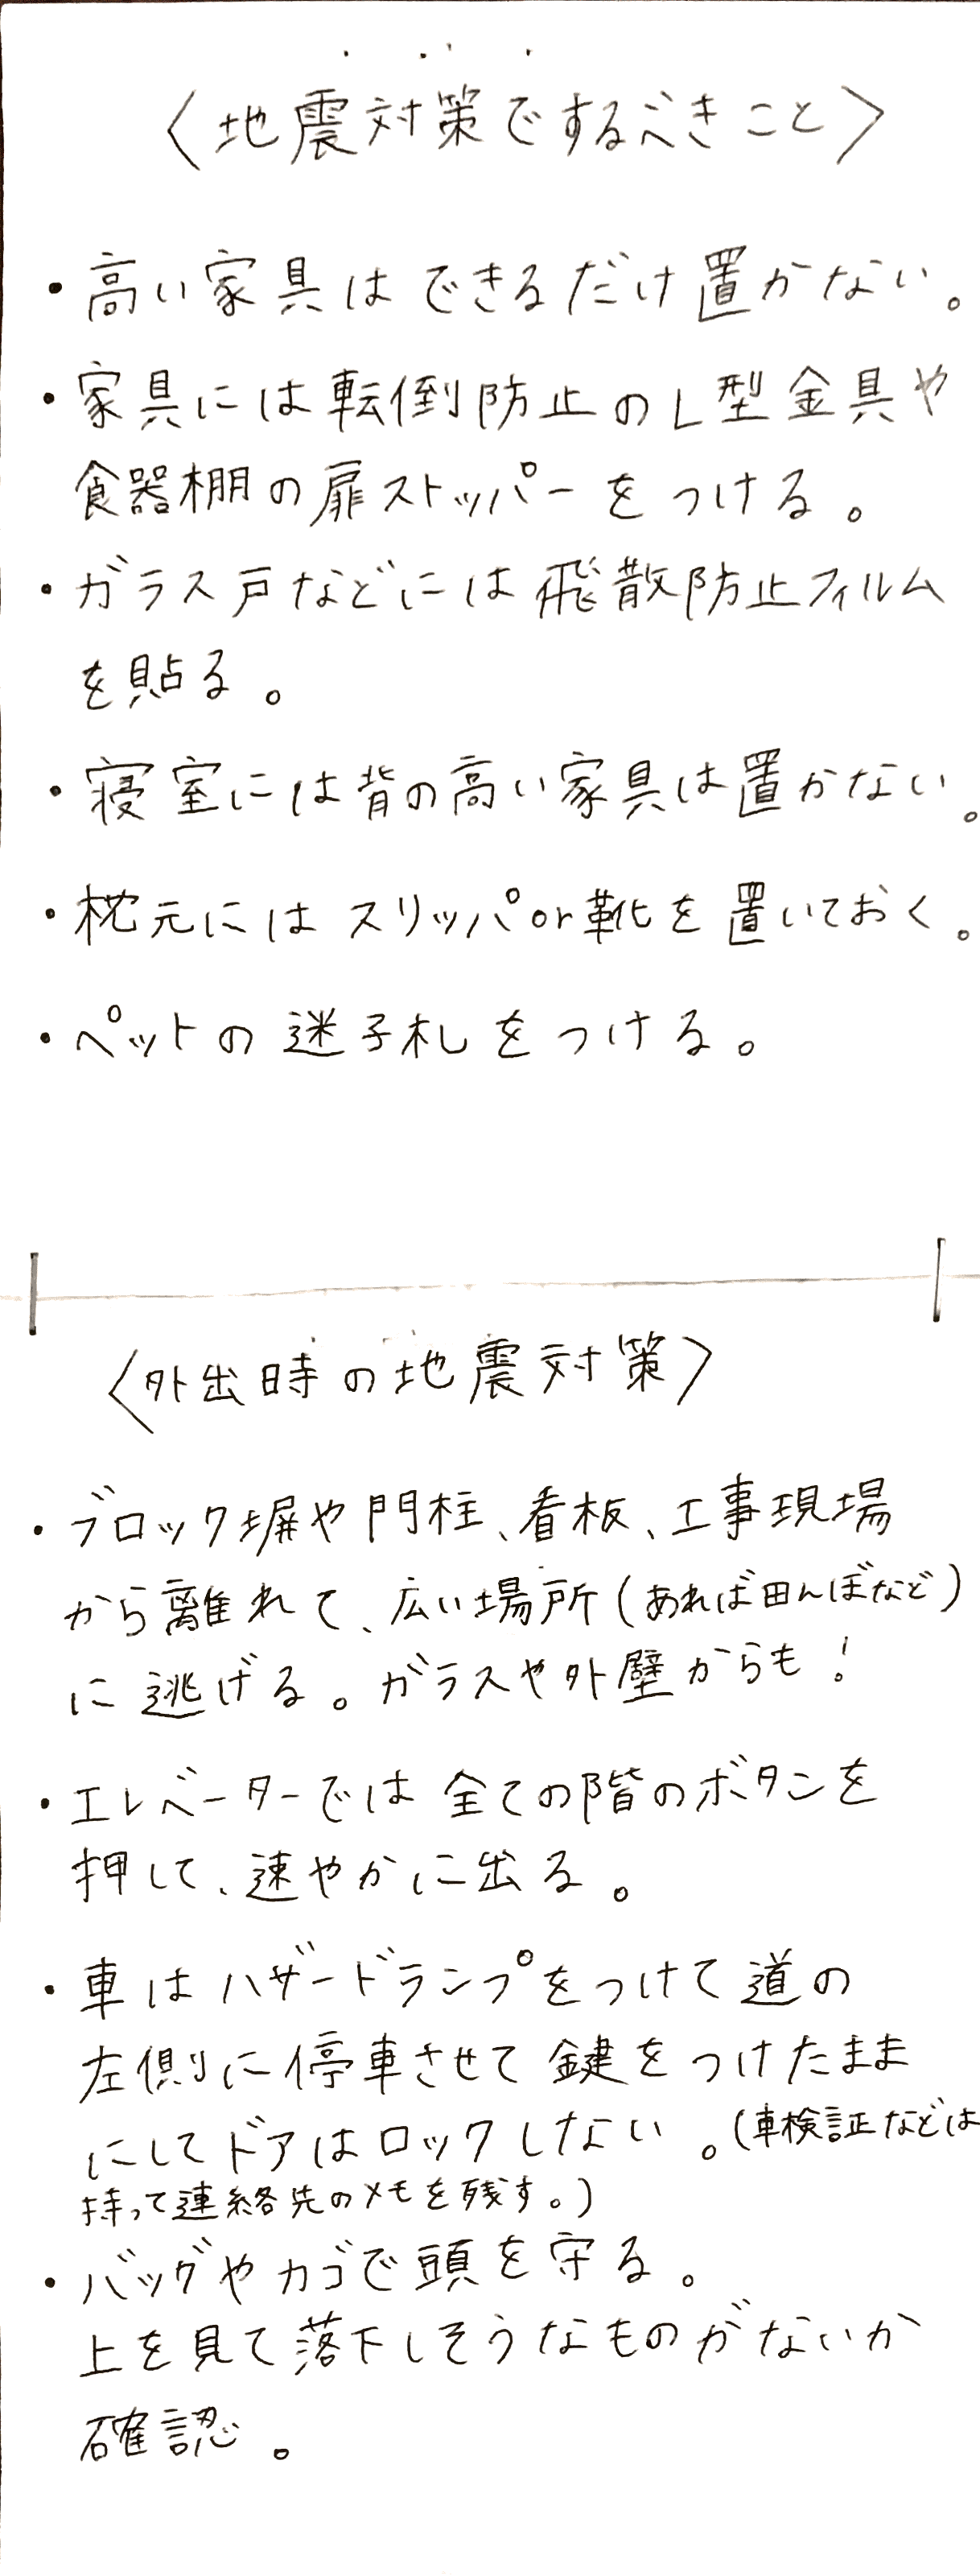 〈地震対策でするべきこと〉
・高い家具はできるだけ置かない。
・家具には転倒防止のL型金具や
食器棚の扉ストッパーをつける。
・ガラス戸などには飛散防止フィルム
を貼る。
・寝室には背の高い家具は置かない。
・枕元にはスリッパor靴を置いておく。
・ペットの迷子札をつける。
〈外出時の地震対策〉
・ブロック塀や門柱、看板、工事現場
から離れて、広い場所(あれば田んぼなど)
に逃げる。ガラスや外壁からも!
・エレベーターでは全ての階のボタンを
押して、速やかに出る。
・車はハザードランプをつけて道の
左側に停車させて鍵をつけたまま
にしてドアはロックしない。(車検証などは
持って連絡先のメモを残す。)
・バッグやカゴで頭を守る。
上を見て落下しそうなものがないか
確認。